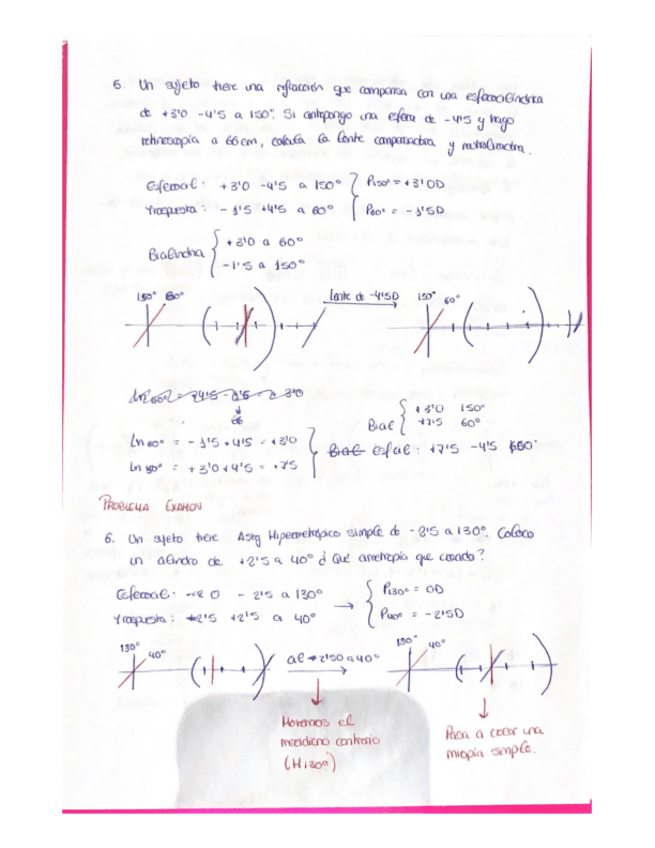 5. Un sujeto tiene una refracción que compensa con una esferocilíndrica
de +3'0 -4'5 a 150°. Si antepongo una esfera de -4'5 y hago
retinoscopía a 66 cm, calcula la lente compensadora y neutralizadora.
Esferocil: +3'0 -4'5 a 150°
P150° = +3'0D
Traspuesta: -1'5 +4'5 a 60°
P60° = -1'5D
Bicilíndrica
+3'0 a 60°
-1'5 a 150°
150° 60°
lente de -4'5D
150° 60°
Ln60° = -1'5 + 4'5 = +3'0
Ln150° = +3'0 + 4'5 = +7'5
Bicil
+3'0 150°
+7'5 60°
Bicil esfcil: +7'5 -4'5 150°
PROBLEMA EXAMEN
6. Un sujeto tiene Astig Hipermetrópico simple de -2'5 a 130°. Coloco
un cilindro de +2'5 a 40° ¿Qué ametropía he creado?
Esferocil: 0 -2'5 a 130°
P130° = 0D
Traspuesta: -2'5 +2'5 a 40°
P40° = -2'5D
130° 40°
cil +2'50 a 40°
130° 40°
Movemos el
meridiano contrario
(H130°)
Pasa a crear una
miopía simple.